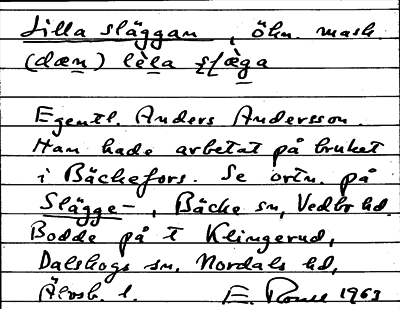 Lilla släggan, öhn. mask.
(dæn) lèla slæ̀ga
Egentl. Anders Andersson.
Han hade arbetat på bruket
i Bäckefors. Se ortn. på
Slägge-, Bäcke sn, Vedbo hd.
Bodde på t Klingerud,
Dalskogs sn. Nordals hd,
Älvsb. l. E. 1963